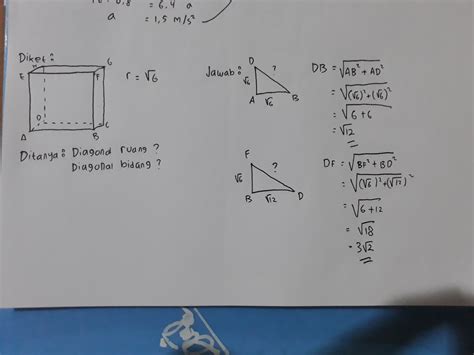 = 6,4 a
a = 1,5 m/s²
Diket :
H G
E F
D C
A B
r = √6
Ditanya : Diagonal ruang ?
Diagonal bidang ?
Jawab :
D
?
√6
A √6 B
DB = √AB² + AD²
= √(√6)² + (√6)²
= √6 + 6
= √12
F
?
√6
B √12 D
DF = √BF² + BD²
= √(√6)² + (√12)²
= √6 + 12
= √18
= 3√2